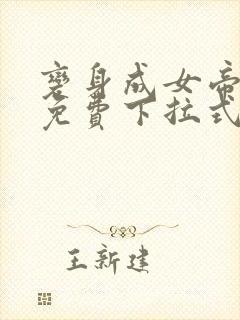 變身成女帝
免費下拉式
王新建